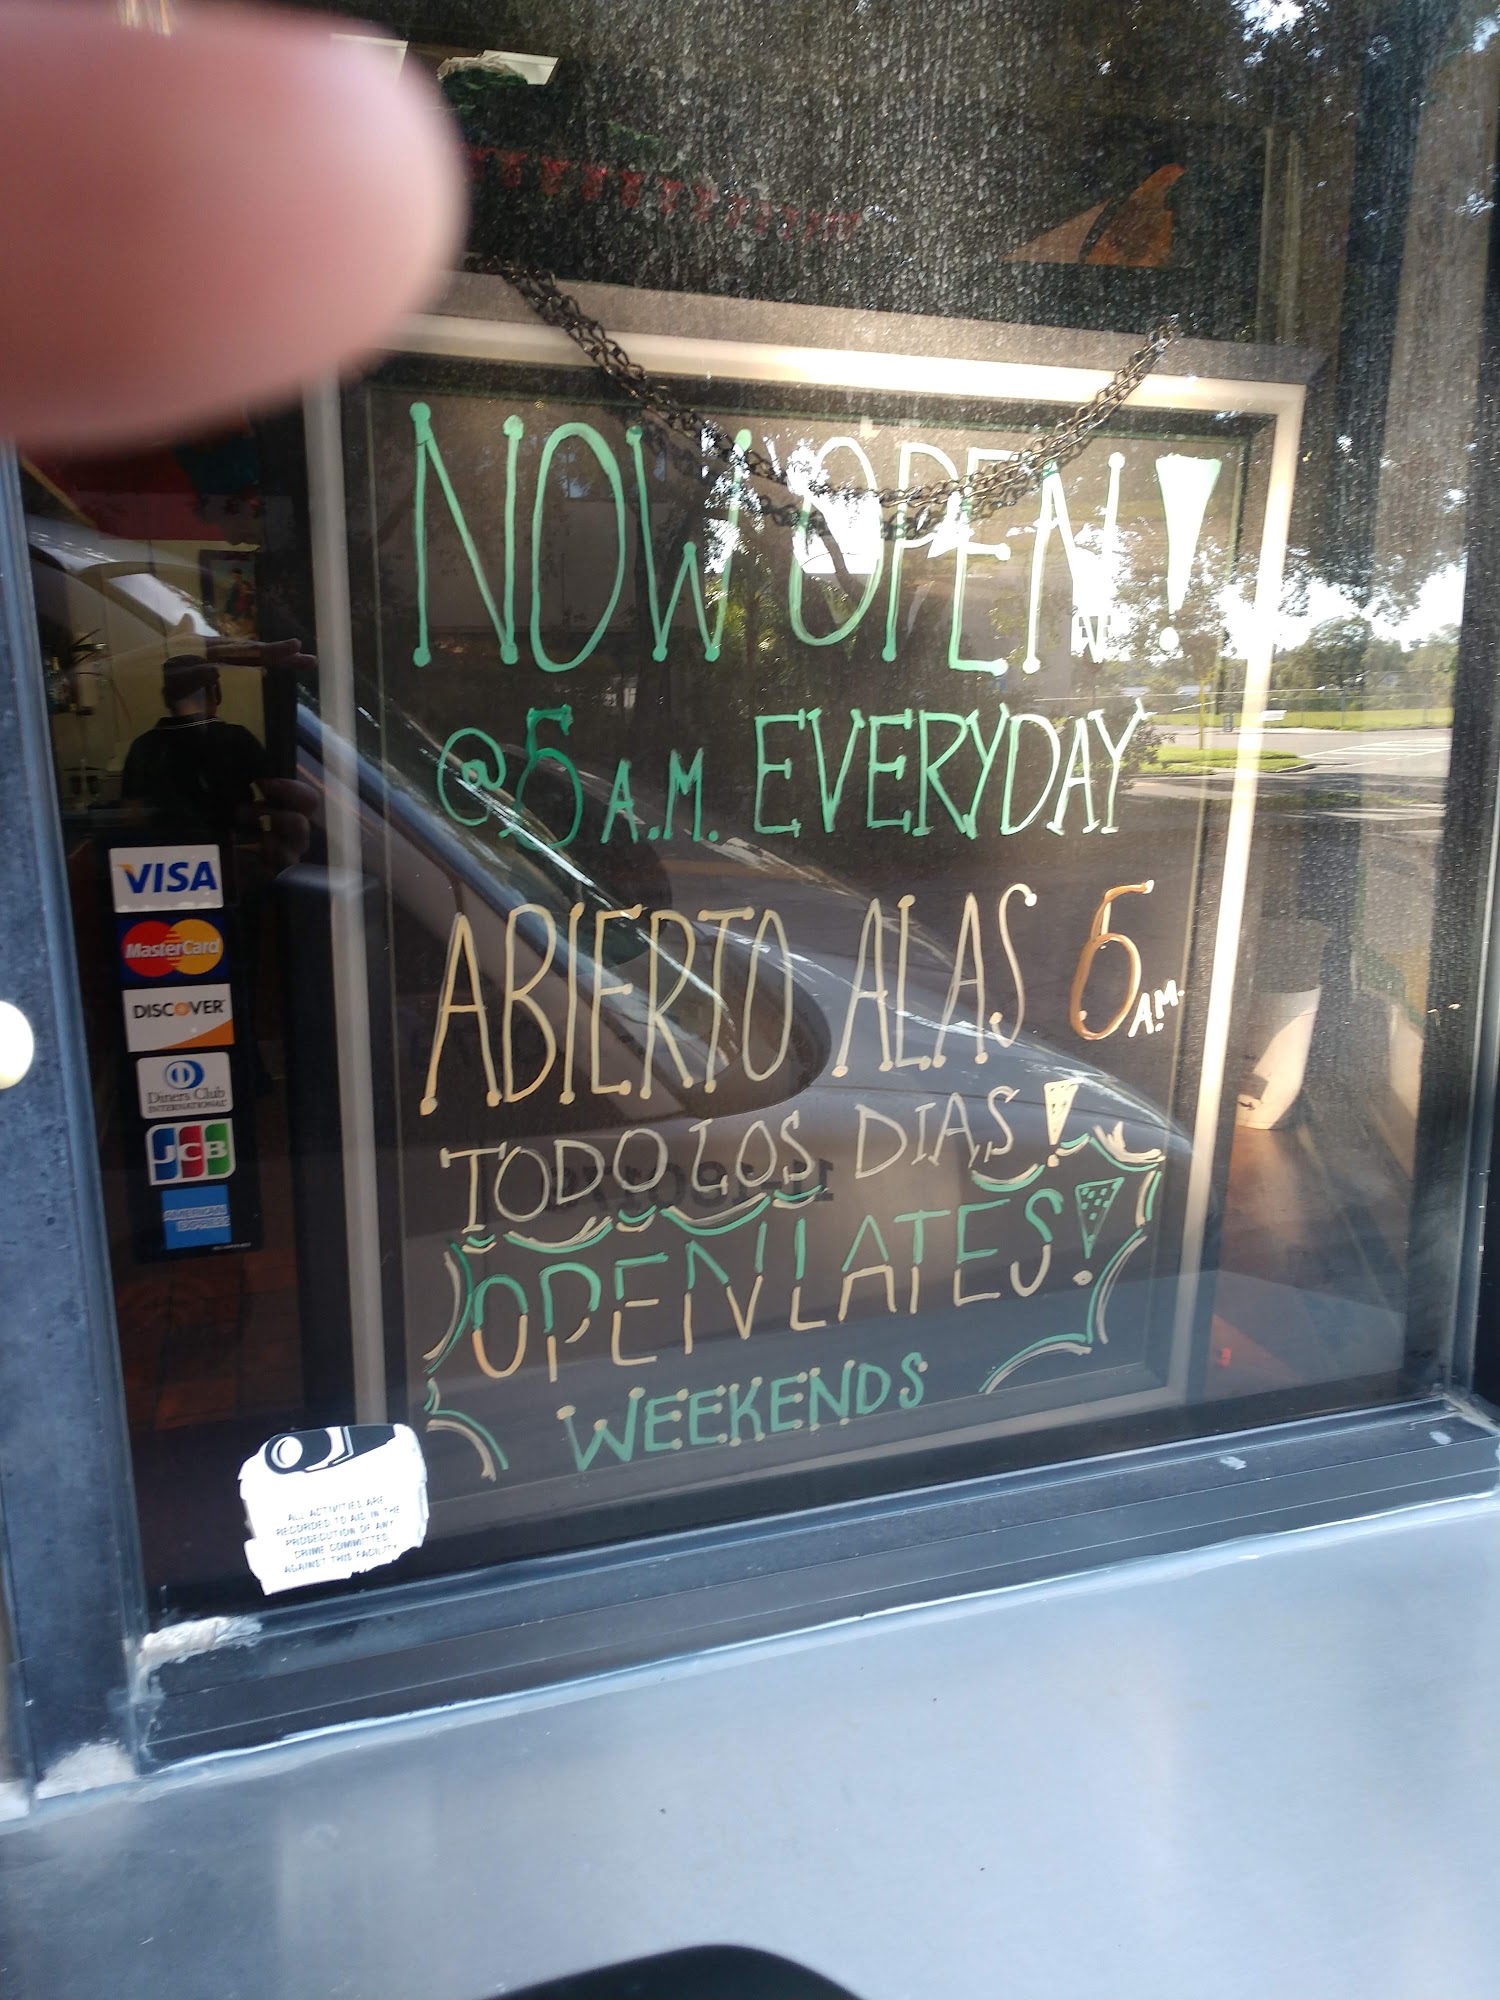 NOW OPEN!
@5 A.M. EVERYDAY
ABIERTO ALAS 5 A.M.
TODO LOS DIAS!
OPEN LATES!
WEEKENDS
VISA
MasterCard
DISCOVER
Diners Club
INTERNATIONAL
JCB
AMERICAN
EXPRESS
ALL ACTIVITIES ARE
RECORDED TO AID IN THE
PROSECUTION OF ANY
CRIME COMMITTED
AGAINST THIS FACILITY